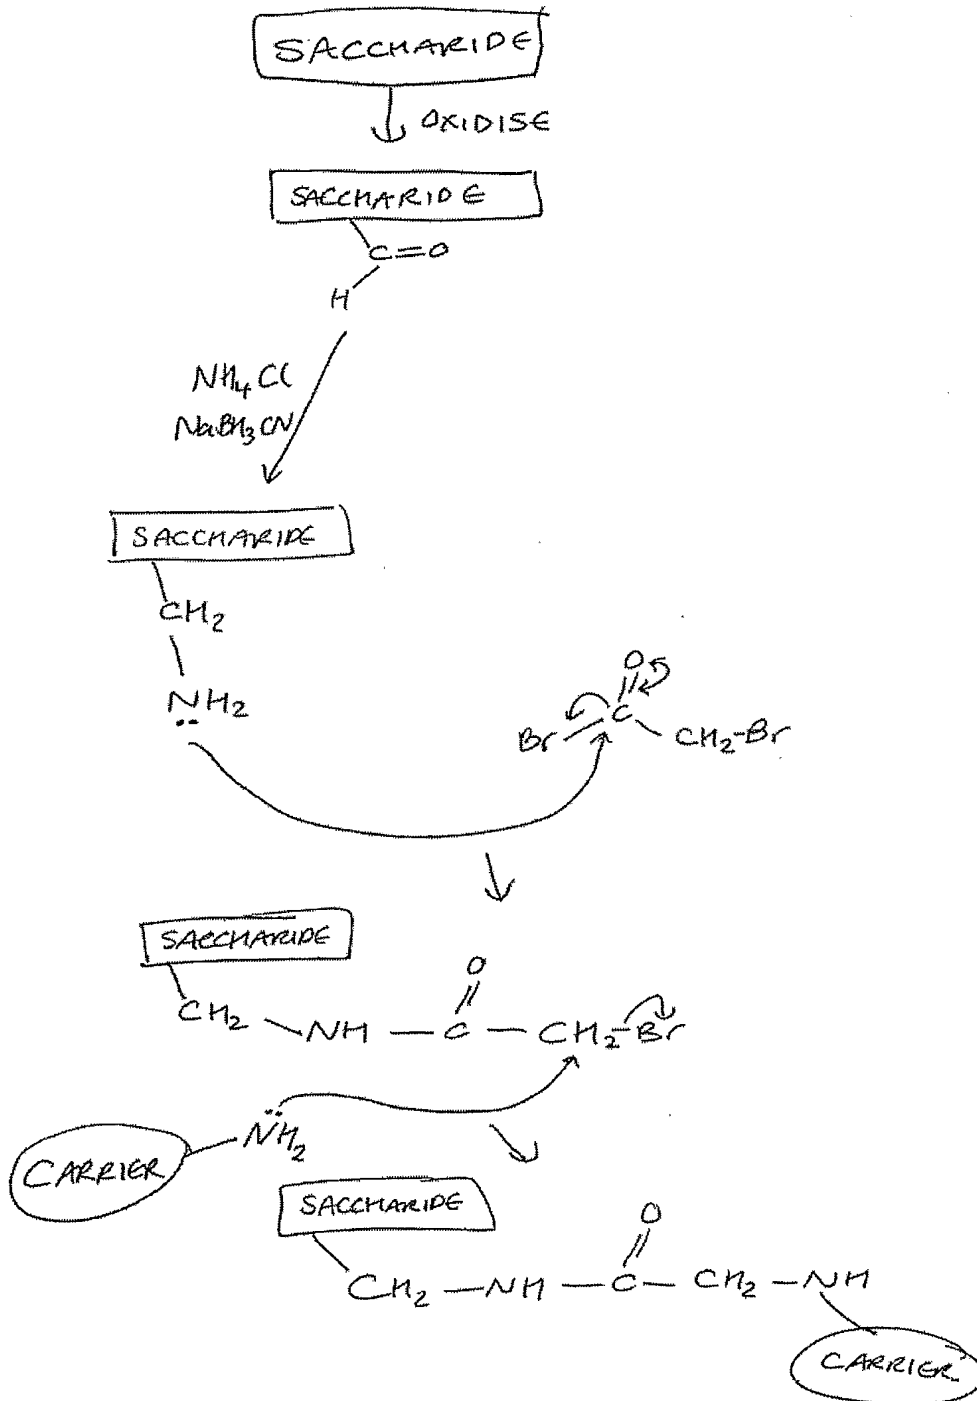 SACCHARIDE
OXIDISE
SACCHARIDE
C=O
H
NH4Cl
NaBH3CN
SACCHARIDE
CH2
NH2
O
Br C CH2-Br
SACCHARIDE
O
CH2 - NH - C - CH2-Br
CARRIER - NH2
SACCHARIDE
O
CH2 - NH - C - CH2 - NH
CARRIER